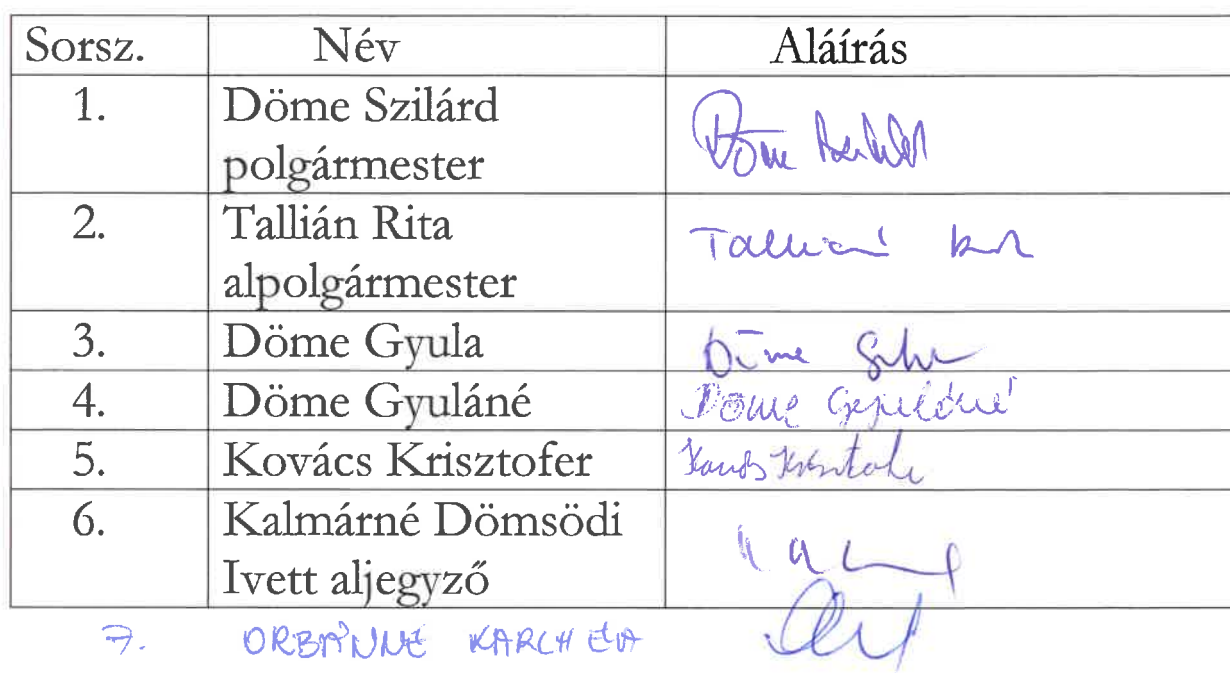 Sorsz. Név Aláírás
1. Döme Szilárd
polgármester
Döme Szilárd
2. Tallián Rita
alpolgármester
Tallián
3. Döme Gyula Döme Gyula
4. Döme Gyuláné Döme Gyuláné
5. Kovács Krisztofer Kovács Krisztofer
6. Kalmárné Dömsödi
Ivett aljegyző
7. ORBÁNNÉ KARCH ÉVA